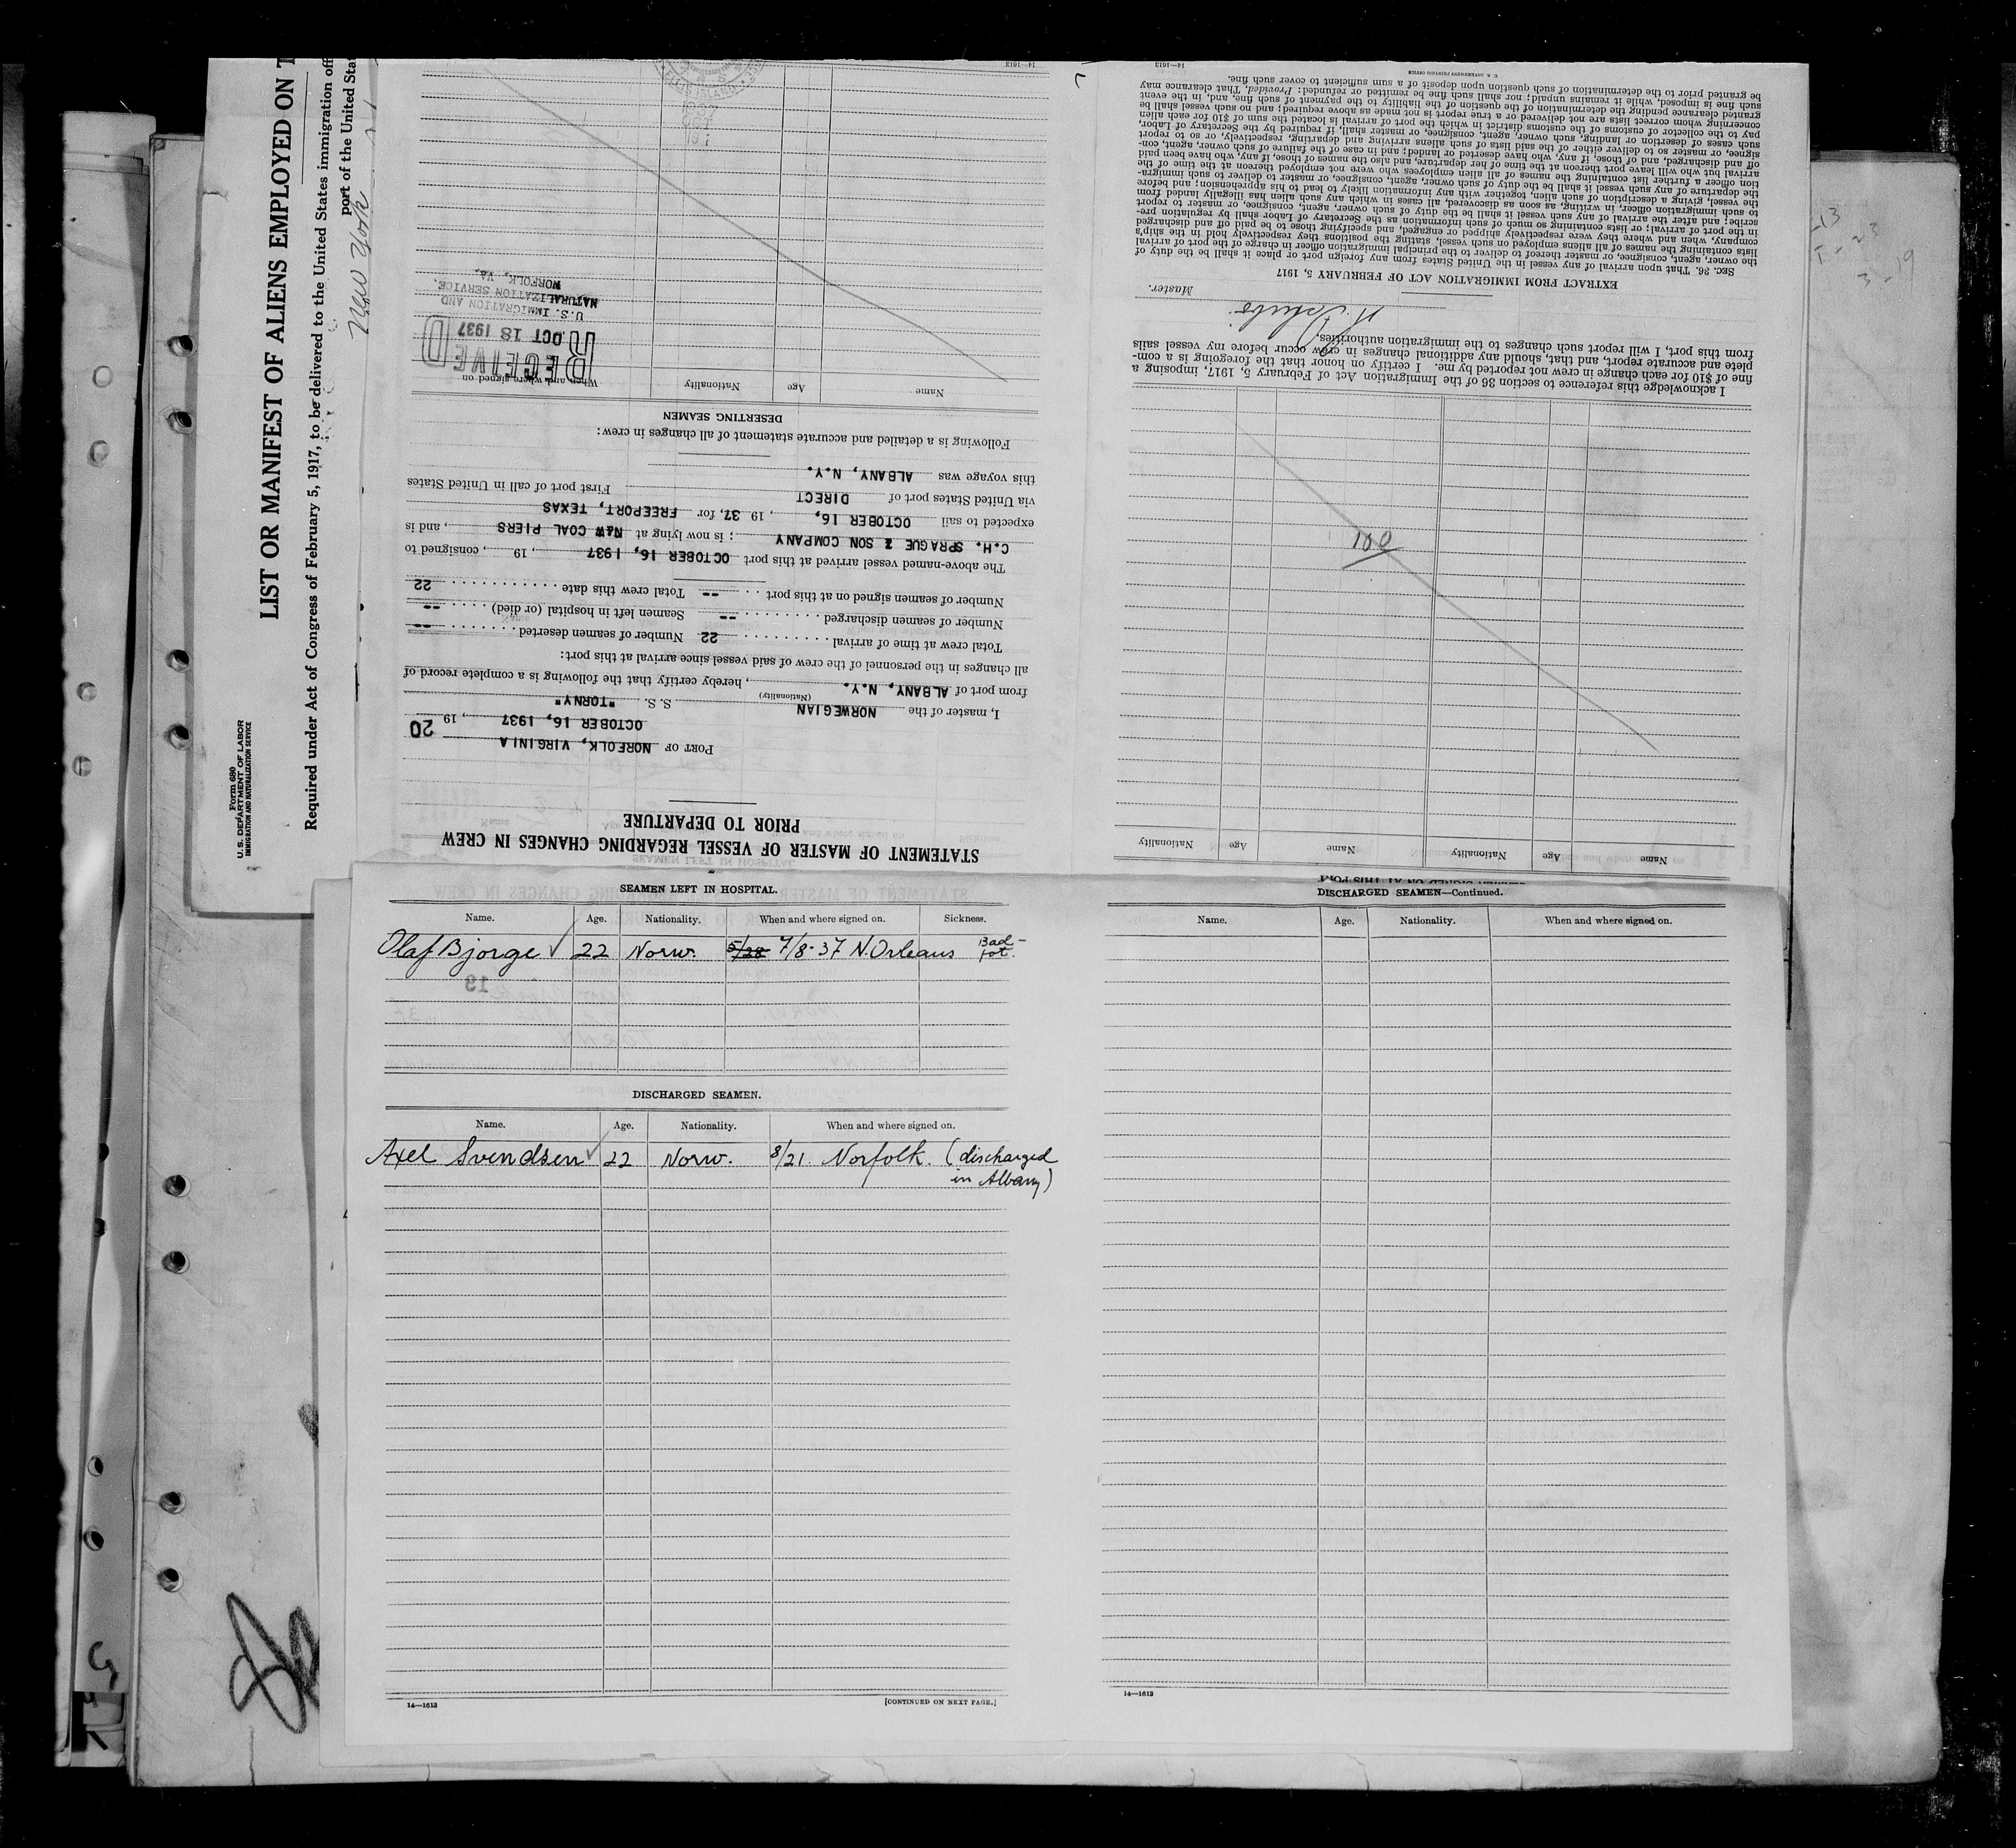 Form 680
U. S. DEPARTMENT OF LABOR
IMMIGRATION AND NATURALIZATION SERVICE
LIST OR MANIFEST OF ALIENS EMPLOYED ON T
Required under Act of Congress of February 5, 1917, to be delivered to the United States immigration off
port of the United Stat
New York
STATEMENT OF MASTER OF VESSEL REGARDING CHANGES IN CREW
PRIOR TO DEPARTURE
PORT OF NORFOLK, VIRGINIA
OCTOBER 16, 1937, 19
20
I, master of the NORWEGIAN S. S. "TORNY"
(Nationality)
from port of ALBANY, N.Y., hereby certify that the following is a complete record of
all changes in the personnel of the crew of said vessel since arrival at this port:
Total crew at time of arrival 22 Number of seamen deserted --
Number of seamen discharged -- Seamen left in hospital (or died) --
Number of seamen signed on at this port -- Total crew this date 22
The above-named vessel arrived at this port OCTOBER 16, 1937, 19 , consigned to
C.H. SPRAGUE & SON COMPANY ; is now lying at N&W COAL PIERS , and is
expected to sail OCTOBER 16, , 19 37, for FREEPORT, TEXAS
via United States port of DIRECT First port of call in United States
this voyage was ALBANY, N.Y.
Following is a detailed and accurate statement of all changes in crew:
DESERTING SEAMEN
Name Age Nationality When and where signed on
RECEIVED
OCT 18 1937
U. S. IMMIGRATION AND
NATURALIZATION SERVICE,
NORFOLK, VA.
ELLIS ISLAND
1937
OCT
14—1613
Name Age Nationality Name Age Nationality
100
I acknowledge this reference to section 36 of the Immigration Act of February 5, 1917, imposing a
fine of $10 for each change in crew not reported by me. I certify on honor that the foregoing is a com-
plete and accurate report, and that, should any additional changes in crew occur before my vessel sails
from this port, I will report such changes to the immigration authorities.
Master.
EXTRACT FROM IMMIGRATION ACT OF FEBRUARY 5, 1917
Sec. 36. That upon arrival of any vessel in the United States from any foreign port or place it shall be the duty of
the owner, agent, consignee, or master thereof to deliver to the principal immigration officer in charge of the port of arrival
lists containing the names of all aliens employed on such vessel, stating the positions they respectively hold in the ship's
company, when and where they were respectively shipped or engaged, and specifying those to be paid off and discharged
in the port of arrival; or lists containing so much of such information as the Secretary of Labor shall by regulation pre-
scribe; and after the arrival of any such vessel it shall be the duty of such owner, agent, consignee, or master to report
to such immigration officer, in writing, as soon as discovered, all cases in which any such alien has illegally landed from
the vessel, giving a description of such alien, together with any information likely to lead to his apprehension; and before
the departure of any such vessel it shall be the duty of such owner, agent, consignee, or master to deliver to such immigra-
tion officer a further list containing the names of all alien employees who were not employed thereon at the time of the
arrival but who will leave port thereon at the time of her departure, and also the names of those, if any, who have been paid
off and discharged, and of those, if any, who have deserted or landed; and in case of the failure of such owner, agent, con-
signee, or master so to deliver either of the said lists of such aliens arriving and departing, respectively, or so to report
such cases of desertion or landing, such owner, agent, consignee, or master shall, if required by the Secretary of Labor,
pay to the collector of customs of the customs district in which the port of arrival is located the sum of $10 for each alien
concerning whom correct lists are not delivered or a true report is not made as above required; and no such vessel shall be
granted clearance pending the determination of the question of the liability to the payment of such fine, and, in the event
such fine is imposed, while it remains unpaid; nor shall such fine be remitted or refunded: Provided, That clearance may
be granted prior to the determination of such question upon deposit of a sum sufficient to cover such fine.
U. S. GOVERNMENT PRINTING OFFICE
14—1613
SEAMEN LEFT IN HOSPITAL.
Name. Age. Nationality. When and where signed on. Sickness.
Olaf Bjorge 22 Norw. 5/28 7/8-37 N.Orleans Bad-
fot.
19
DISCHARGED SEAMEN.
Name. Age. Nationality. When and where signed on.
Axel Svendsen 22 Norw. 8/21. Norfolk. (discharged
in Albany)
14—1613
[CONTINUED ON NEXT PAGE.]
DISCHARGED SEAMEN—Continued.
Name. Age. Nationality. When and where signed on.
14—1613